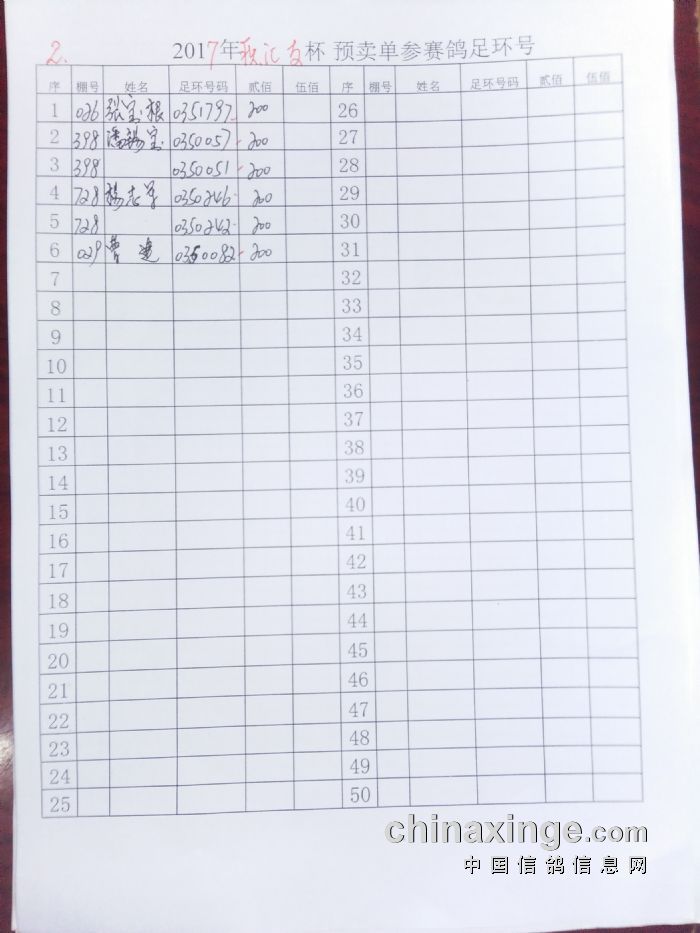 2.
2017年 汇友杯 预卖单参赛鸽足环号
序 棚号 姓名 足环号码 贰佰 伍佰 序 棚号 姓名 足环号码 贰佰 伍佰
1 026 张宝根 0351797 200 26
2 398 潘锡宝 0350057 200 27
3 398 0350051 200 28
4 728 杨志军 0350246 200 29
5 728 0350242 200 30
6 029 曹建 0350082 200 31
7 32
8 33
9 34
10 35
11 36
12 37
13 38
14 39
15 40
16 41
17 42
18 43
19 44
20 45
21 46
22 47
23 48
24 49
25 50
chinaxinge.com
中国信鸽信息网